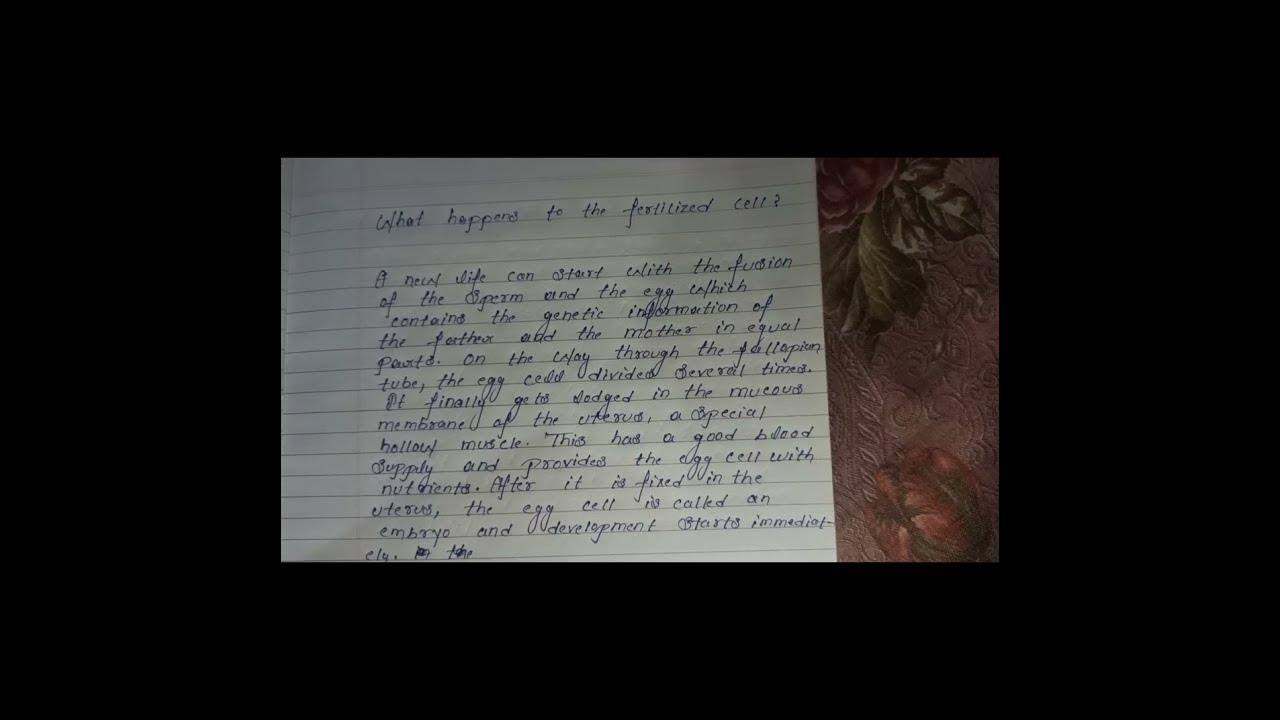 What happens to the fertilized cell?
A new life can start with the fusion
of the sperm and the egg which
contains the genetic information of
the father and the mother in equal
parts. On the way through the fallopian
tube, the egg cell divides several times.
It finally gets lodged in the mucous
membrane of the uterus, a special
hollow muscle. This has a good blood
supply and provides the egg cell with
nutrients. After it is fixed in the
uterus, the egg cell is called an
embryo and development starts immediat-
ely. the